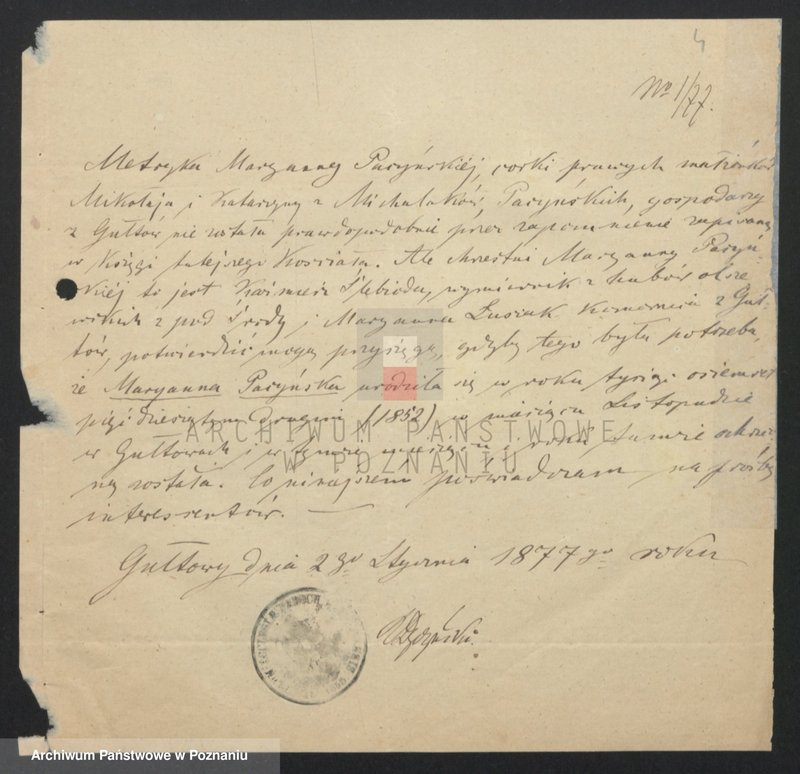 4
No 1/77.
Metryka Maryanny Pacyńskiéj, corki prawych małżonków
Mikołaja i Katarzyny z Michalaków, Pacyńskich, gospodarzy
z Gułtów nie została prawdopodobnie przez zapomnienie zapisaną
w Księgi tutejszego Kościoła. Ale chrzestni Maryanny Pacyń-
skiéj to jest Kaźmierz Ślebioda, wymiernik z hubów olsze
z pod Środy i Maryanna Łusiak Komornica z Guł-
tów, potwierdzić mogą przysięgą, gdyby tego była potrzeba,
że Maryanna Pacyńska urodziła się w roku tysiąc ośiemset
pięćdziesiątym drugim (1852) w miesiącu Listopadzie
w Gułtowach i w tymże miesiącu i roku tamże ochrzco-
ną została. Co niniejszem poświadczam na prośbę
interessentów. —
Gułtowy dnia 2go Stycznia 1877go roku
ARCHIWUM PAŃSTWOWE
W POZNANIU
Archiwum Państwowe w Poznaniu